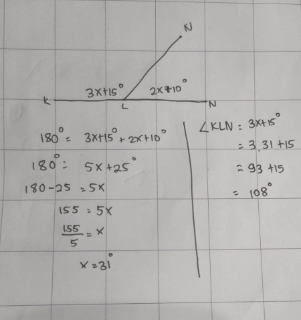 N
3x+15° 2x+10°
K L N
180° = 3x+15° + 2x+10°
180° = 5x+25°
180-25 = 5x
155 = 5x
155/5 = x
x = 31°
∠KLN = 3x+15°
= 3.31+15
= 93+15
= 108°